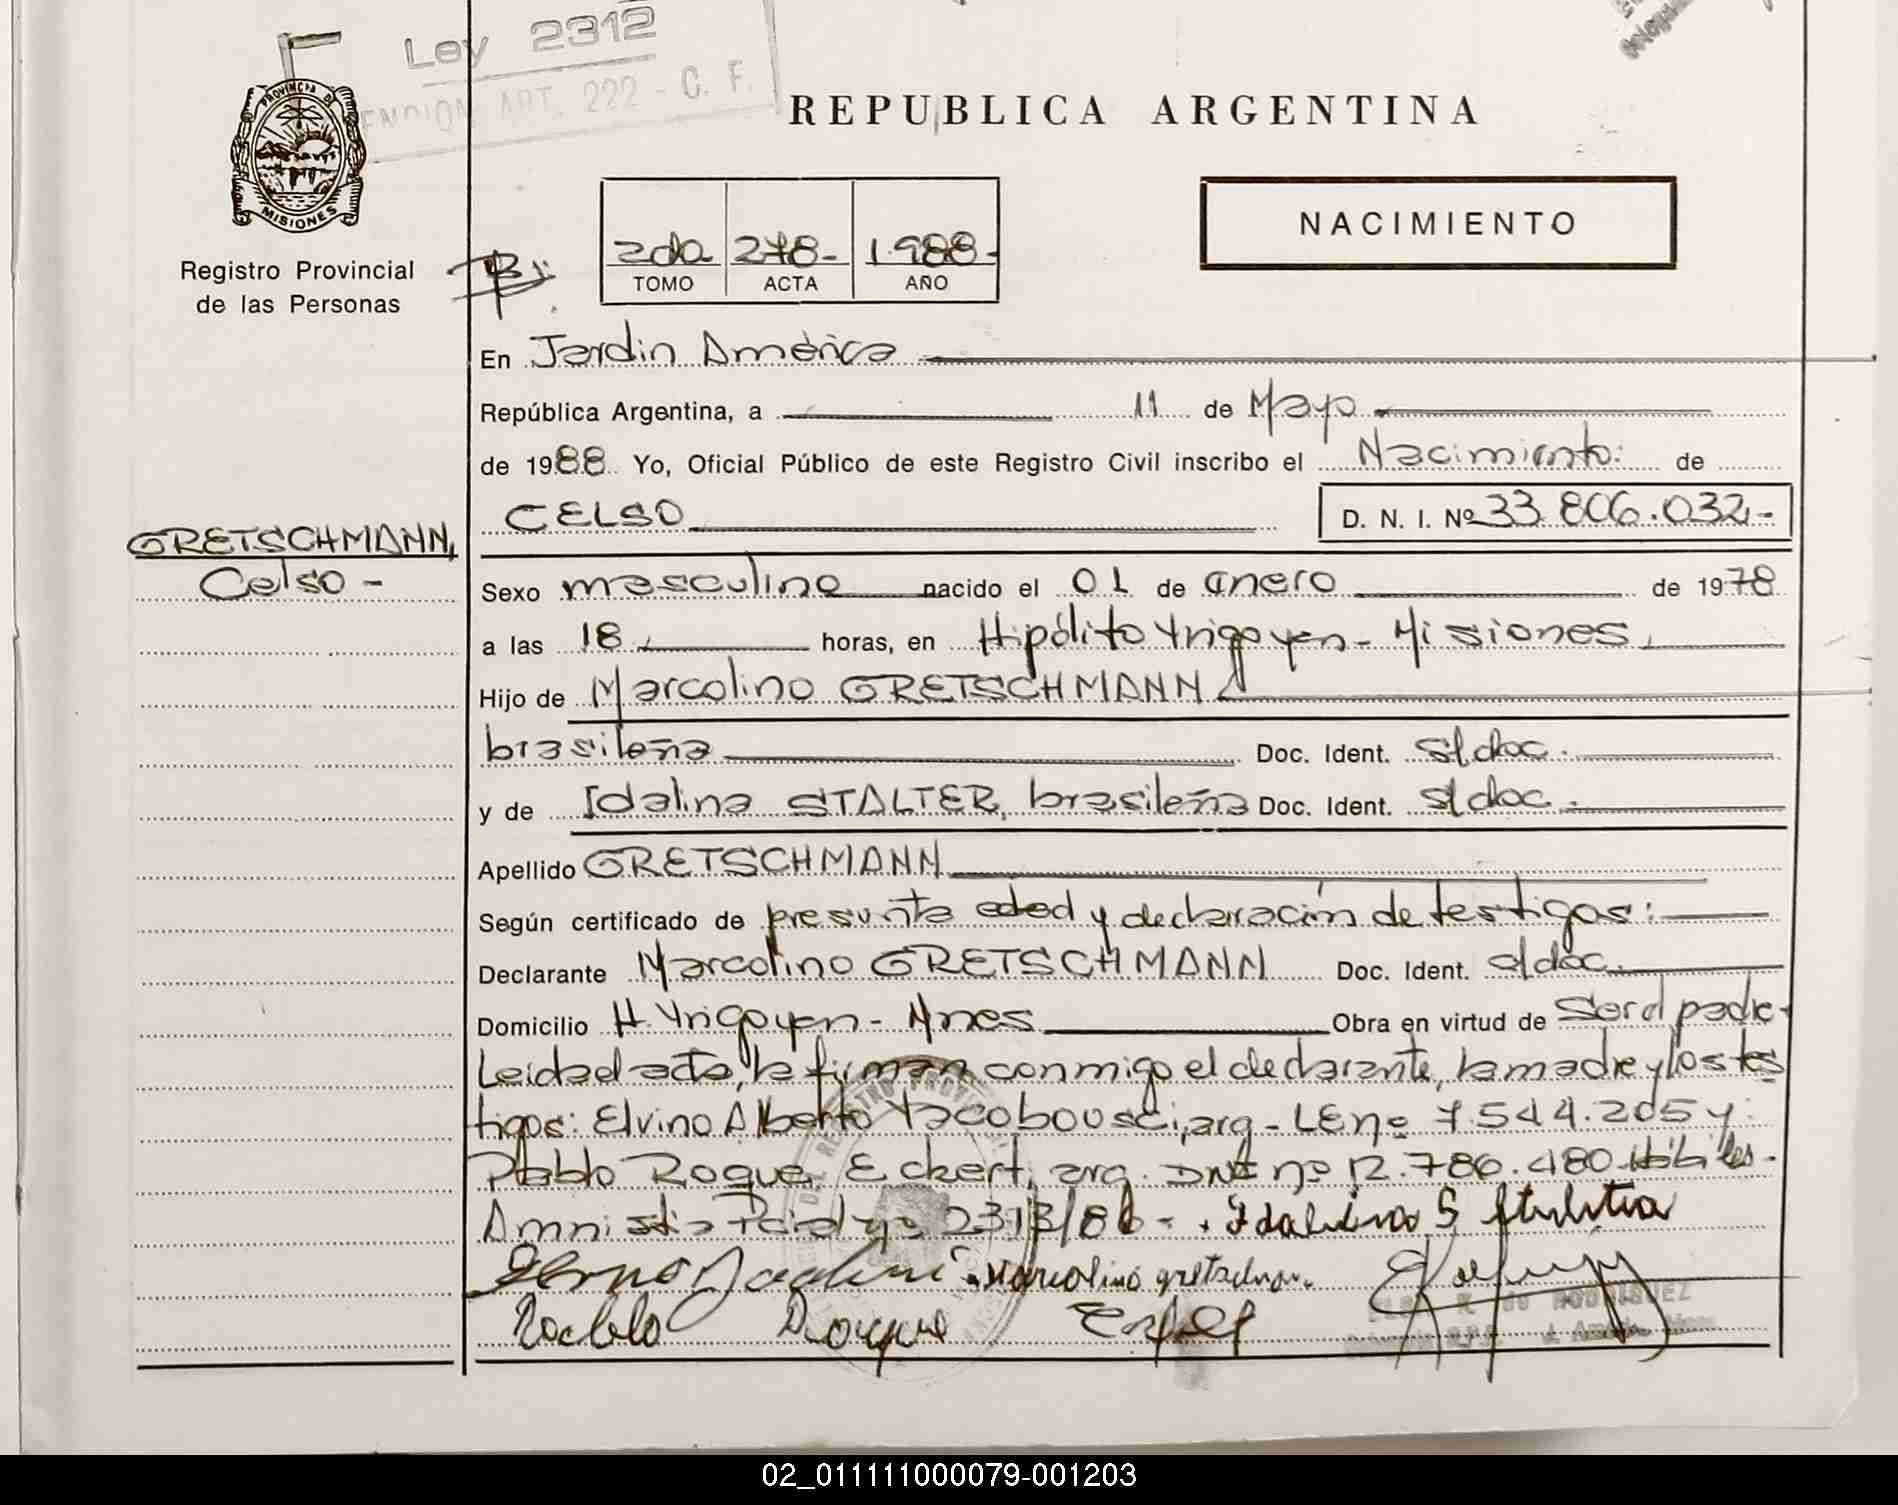 Ley 2312
ART. 222 - C. F.
PROVINCIA DE
MISIONES
Registro Provincial
de las Personas
REPUBLICA ARGENTINA
NACIMIENTO
2do 278- 1.988-
TOMO ACTA AÑO
En Jardin América
República Argentina, a 11 de Mayo
de 1988 Yo, Oficial Público de este Registro Civil inscribo el Nacimiento: de
CELSO D. N. I. Nº 33.806.032-
GRETSCHMANN,
Celso -
Sexo masculino nacido el 01 de enero de 1978
a las 18 horas, en Hipólito Yrigoyen - Misiones
Hijo de Marcolino GRETSCHMANN
brasileña Doc. Ident. s/doc.
y de Idalina STALTER, brasileña Doc. Ident. s/doc.
Apellido GRETSCHMANN
Según certificado de presunta edad y declaración de testigos:
Declarante Marcolino GRETSCHMANN Doc. Ident. s/doc.
Domicilio H. Yrigoyen - Mnes Obra en virtud de Ser el padre.
Leida el acta, la firman conmigo el declarante, la madre y los tes
tigos: Elvino Alberto Yacobousci, arg - LE nº 7.544.205 y
Pablo Roque Eckert, arg. DNI nº 12.786.480 Hábiles.
Amnistia Pcial nº 2313/86 - Idalina S
Marcolino
Roque
RODRIGUEZ
02_011111000079-001203